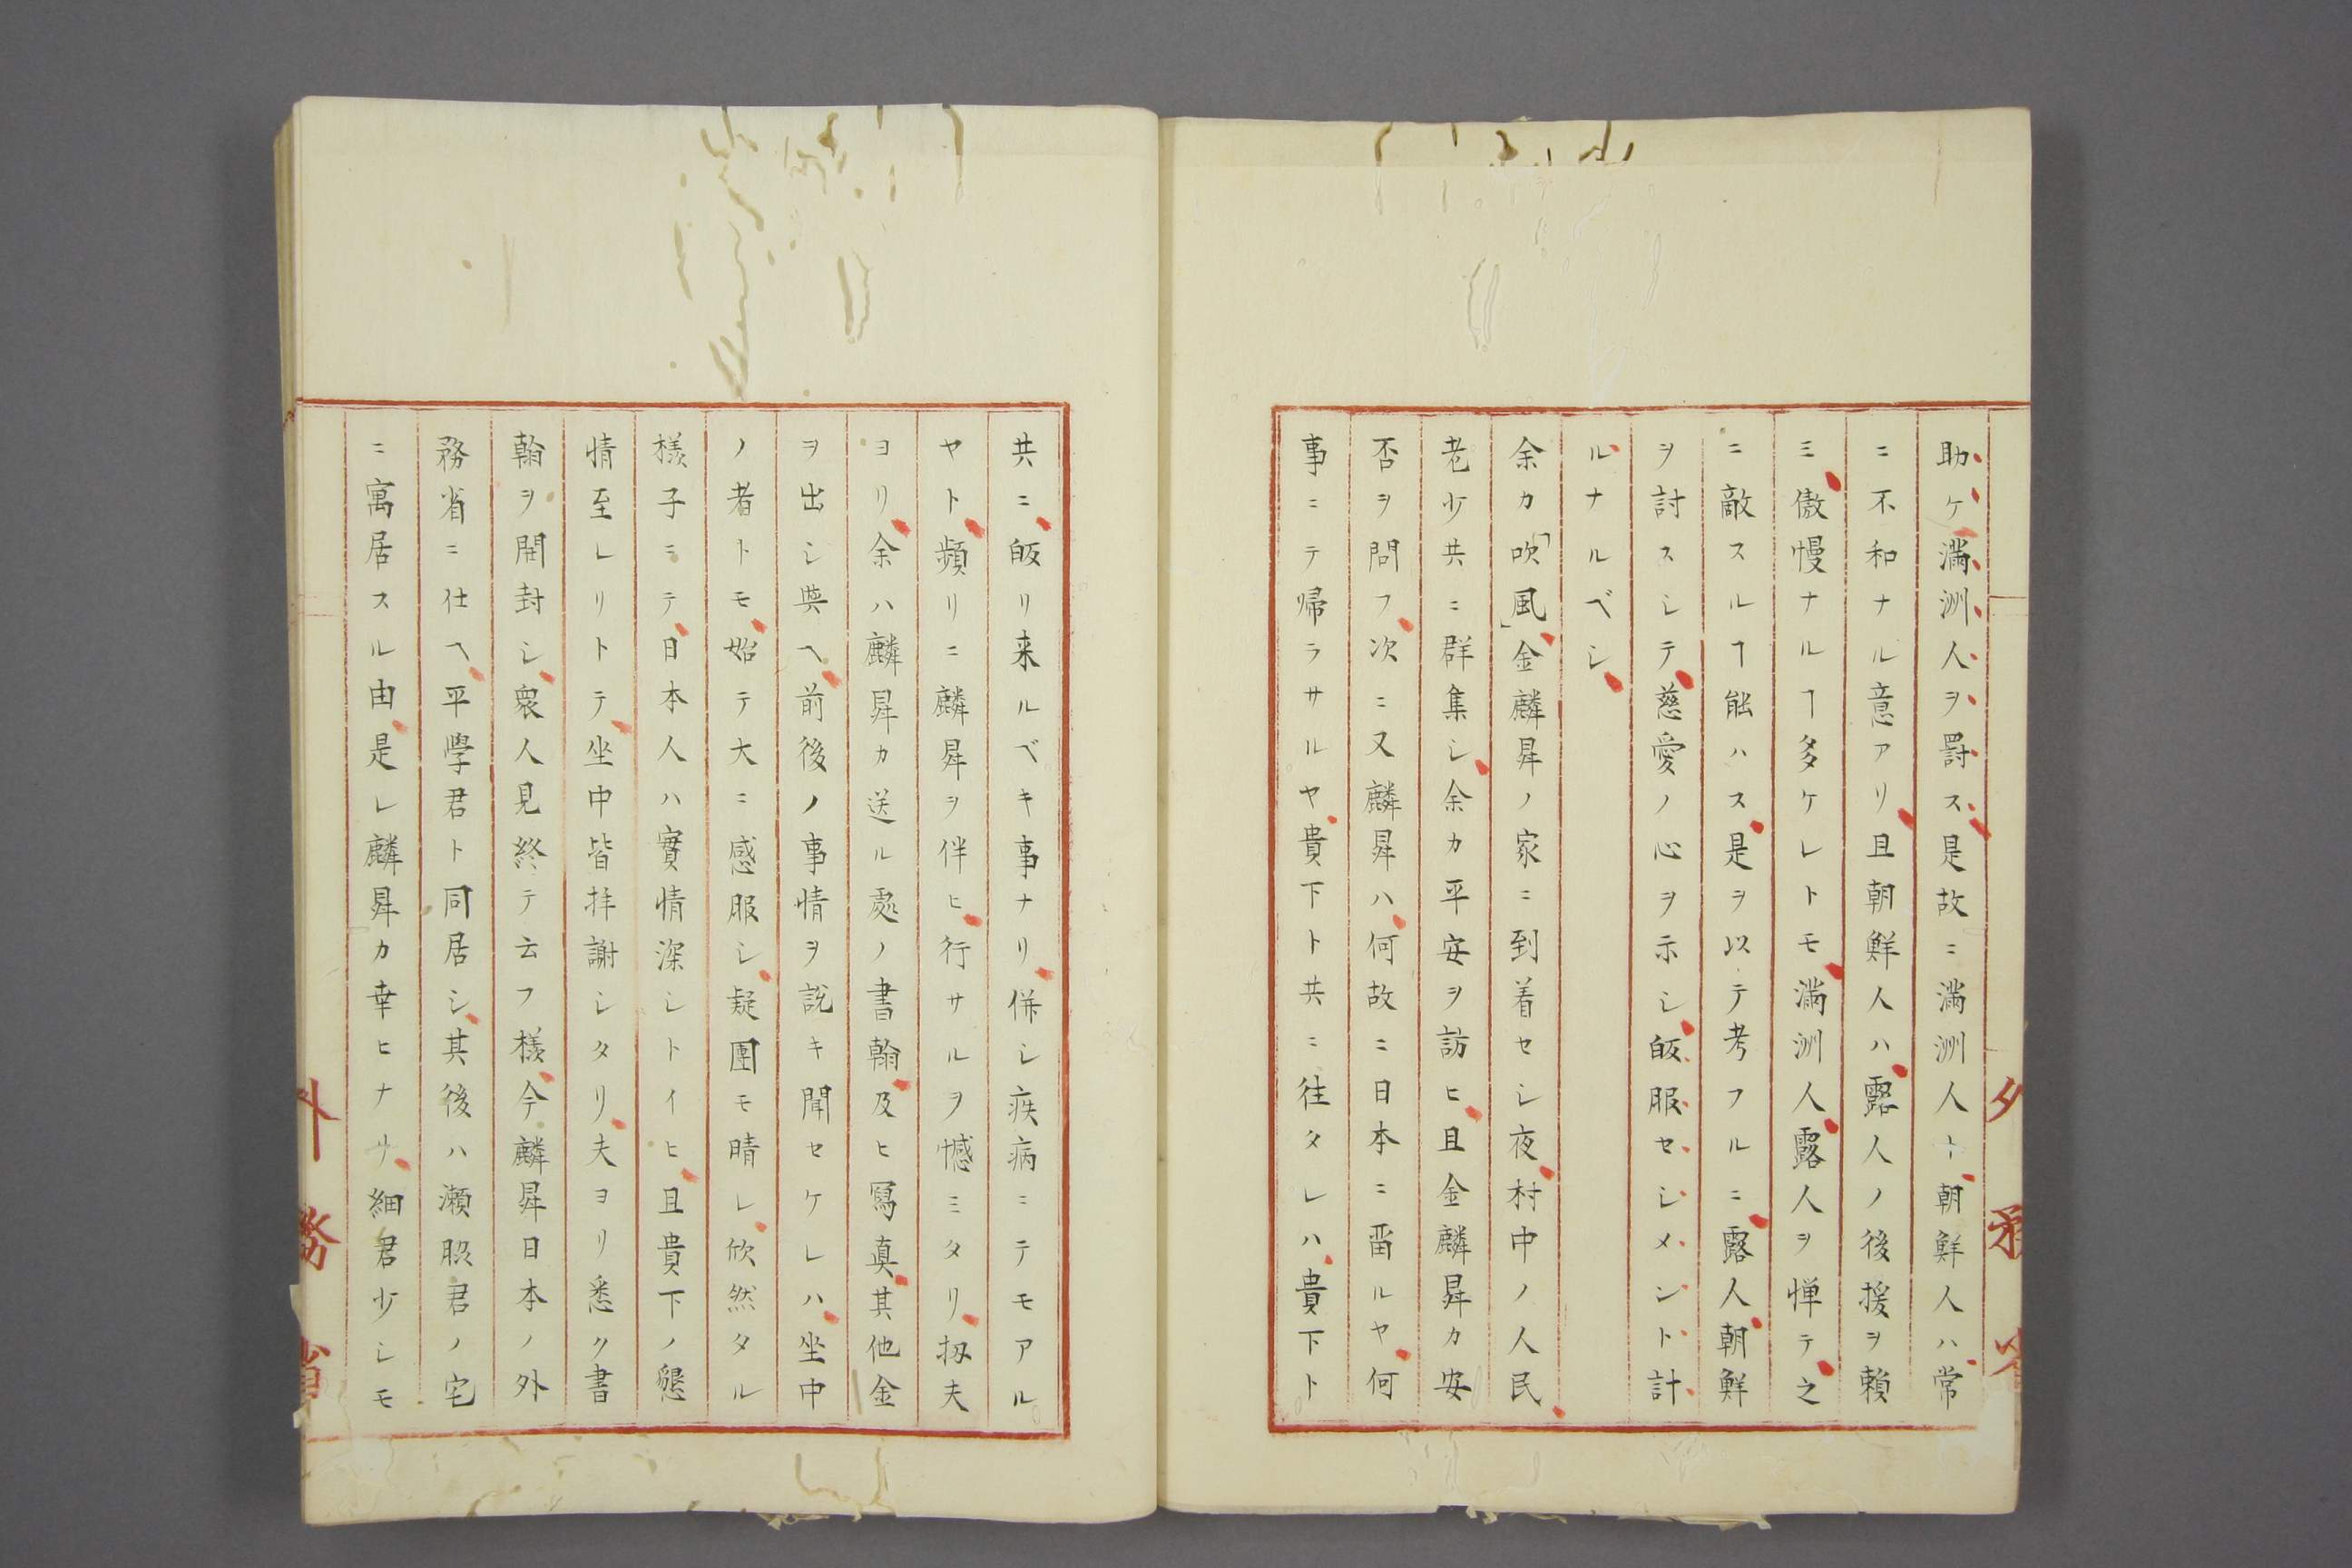 助ケ満洲人ヲ罸ス是故ニ満洲人ト朝鮮人ハ常
ニ不和ナル意アリ且朝鮮人ハ露人ノ後援ヲ頼
ミ傲慢ナルヿ多ケレトモ満洲人露人ヲ憚テ之
ニ敵スルヿ能ハス是ヲ以テ考フルニ露人朝鮮
ヲ討スシテ慈愛ノ心ヲ示シ皈服セシメント計
ルナルベシ
余カ「吹風」金麟昇ノ家ニ到着セシ夜村中ノ人民
老少共ニ群集シ余カ平安ヲ訪ヒ且金麟昇カ安
否ヲ問フ次ニ又麟昇ハ何故ニ日本ニ畄ルヤ何
事ニテ帰ラサルヤ貴下ト共ニ往タレハ貴下ト
共ニ皈リ来ルベキ事ナリ併シ疾病ニテモアル
ヤト頻リニ麟昇ヲ伴ヒ行サルヲ憾ミタリ扨夫
ヨリ余ハ麟昇カ送ル處ノ書翰及ヒ冩真其他金
ヲ出シ與ヘ前後ノ事情ヲ説キ聞セケレハ坐中
ノ者トモ始テ大ニ感服シ疑團モ晴レ欣然タル
様子ニテ日本人ハ實情深シトイヒ且貴下ノ懇
情至レリトテ坐中皆拝謝シタリ夫ヨリ悉ク書
翰ヲ開封シ衆人見終テ云フ様今麟昇日本ノ外
務省ニ仕ヘ平學君ト同居シ其後ハ瀬照君ノ宅
ニ寓居スル由是レ麟昇カ幸ヒナリ細君少シモ
外務省